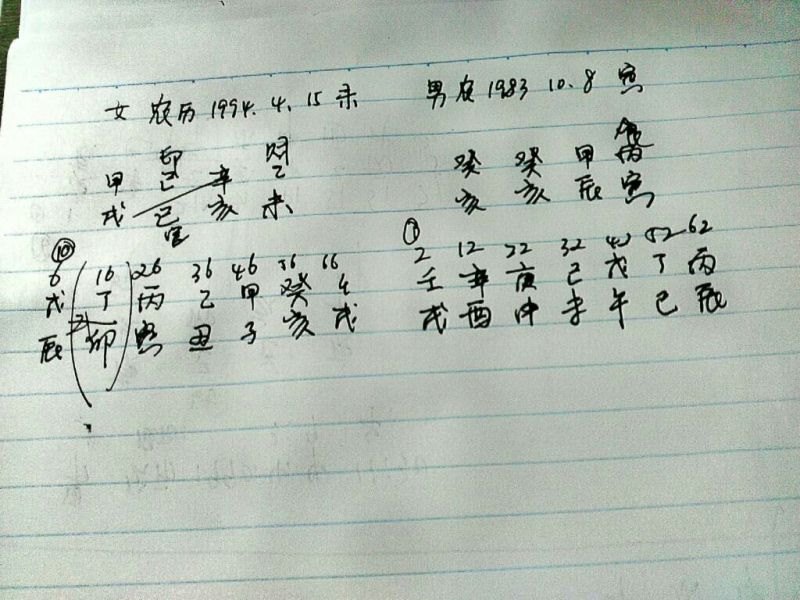 女 农历 1994.4.15 未 男 农 1983 10.8 寅
印 财
甲 己 辛 乙 癸 癸 甲 丙
戌 巳 亥 未 亥 亥 辰 寅
官
⑩ ①
6 16 26 36 46 56 66 2 12 22 32 42 52 62
戊 丁 丙 乙 甲 癸 壬 辛 庚 己 戊 丁 丙
辰 卯 寅 丑 子 亥 戌 戌 酉 申 未 午 巳 辰